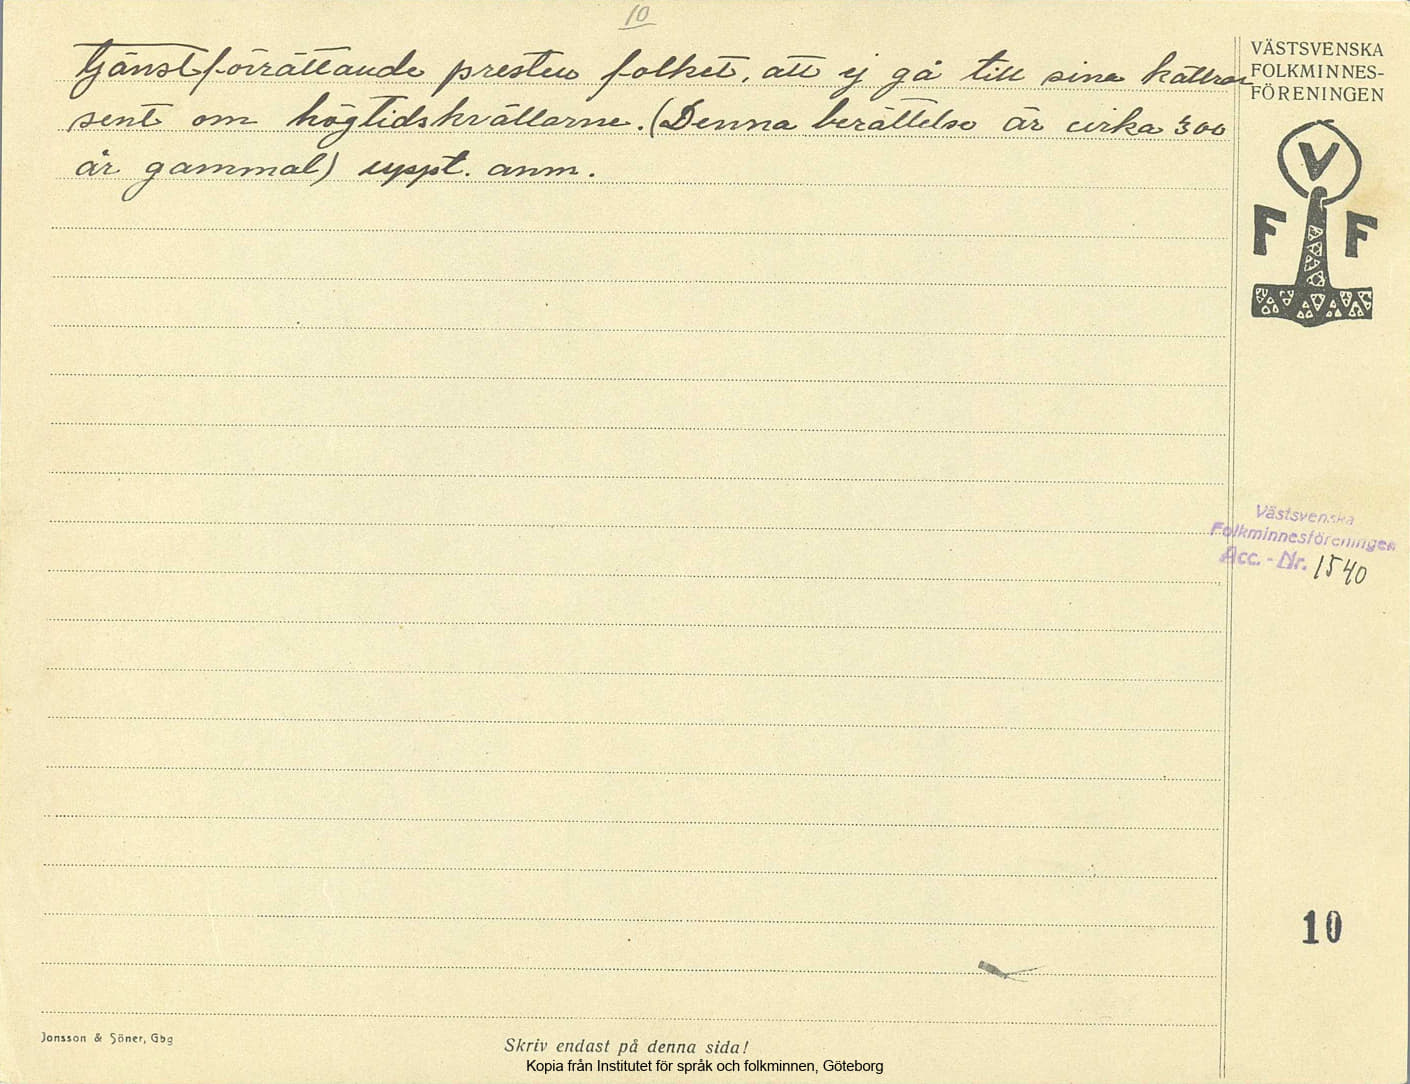 10
tjänstförrättande presten folket, att ej gå till sina källrar
sent om högtidskvällarne. (Denna berättelse är cirka 300
år gammal) uppt. anm.
VÄSTSVENSKA
FOLKMINNES-
FÖRENINGEN
V
F F
Västsvenska
Folkminnesföreningen
Acc. - Nr. 1540
10
Jonsson & Söner, Gbg
Skriv endast på denna sida!
Kopia från Institutet för språk och folkminnen, Göteborg